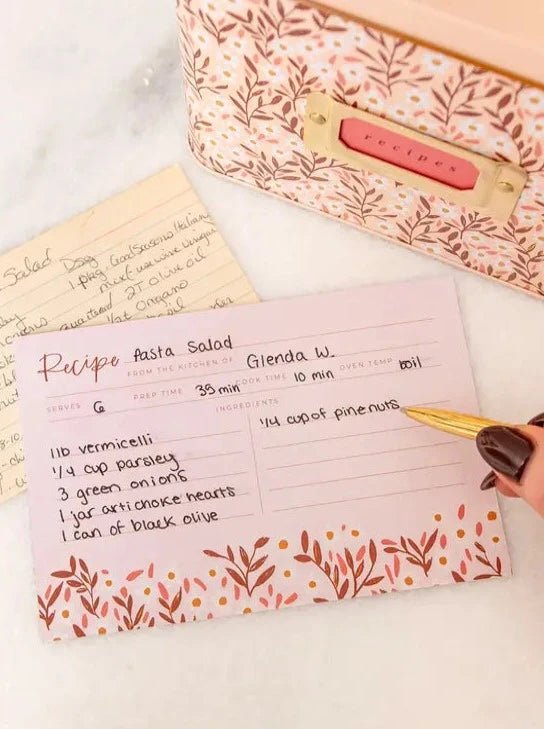 recipes
Salad
Dsg
1 pkg Good Seasons Italian
mix + use wine vinegar
2T olive oil
Recipe Pasta Salad
FROM THE KITCHEN OF Glenda W.
SERVES 6 PREP TIME 35 min COOK TIME 10 min OVEN TEMP boil
INGREDIENTS
1lb vermicelli
1/4 cup parsley
3 green onions
1 jar artichoke hearts
1 can of black olive
1/4 cup of pinenuts